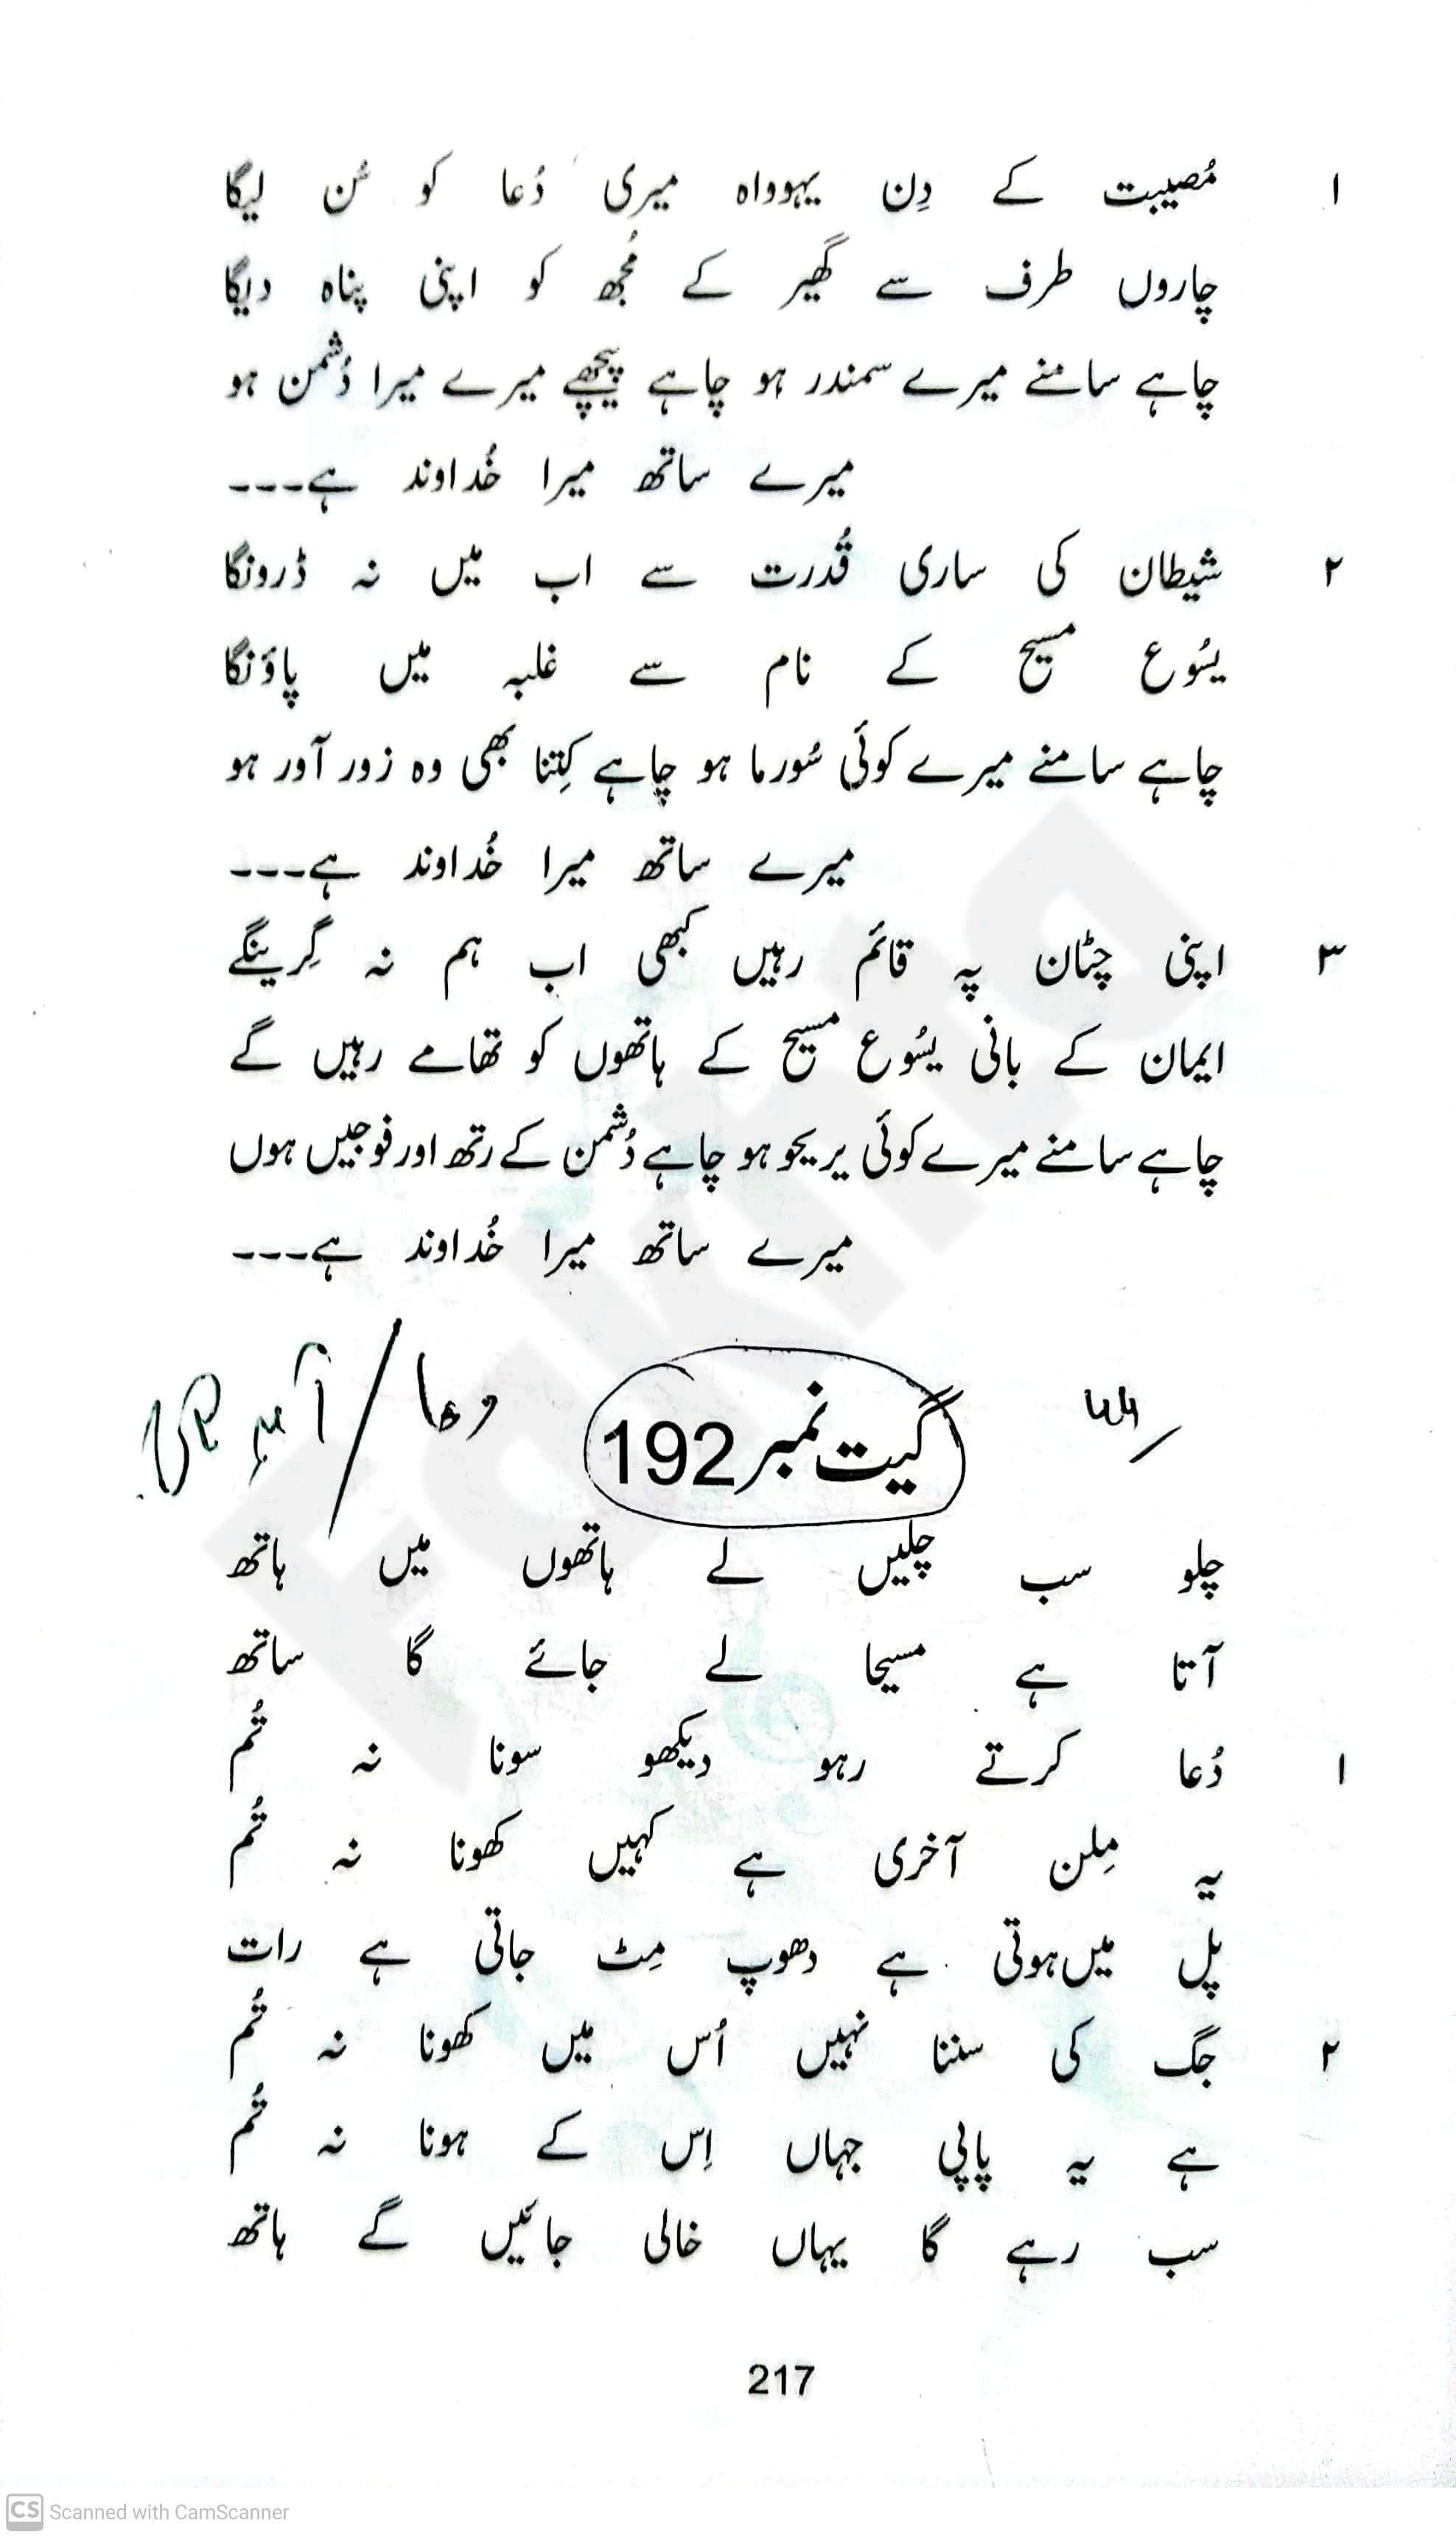 ۱ مُصیبت کے دِن یہوواہ میری دُعا کو سُن لیگا
چاروں طرف سے گھیر کے مُجھ کو اپنی پناہ دیگا
چاہے سامنے میرے سمندر ہو چاہے پیچھے میرے میرا دُشمن ہو
میرے ساتھ میرا خُداوند ہے---
۲ شیطان کی ساری قُدرت سے اب میں نہ ڈرونگا
یسُوع مسیح کے نام سے غلبہ میں پاؤنگا
چاہے سامنے میرے کوئی سُورما ہو چاہے کِتنا بھی وہ زور آور ہو
میرے ساتھ میرا خُداوند ہے---
۳ اپنی چٹان پہ قائم رہیں کبھی اب ہم نہ گِرینگے
ایمان کے بانی یسُوع مسیح کے ہاتھوں کو تھامے رہیں گے
چاہے سامنے میرے کوئی یریحو ہو چاہے دُشمن کے رتھ اور فوجیں ہوں
میرے ساتھ میرا خُداوند ہے---
گیت نمبر 192 دعا / آمد
چلو سب چلیں لے ہاتھوں میں ہاتھ
آتا ہے مسیحا لے جائے گا ساتھ
۱ دُعا کرتے رہو دیکھو سونا نہ تُم
یہ مِلن آخری ہے کہیں کھونا نہ تُم
پل میں ہوتی ہے دھوپ مِٹ جاتی ہے رات
۲ جگ کی سننا نہیں اُس میں کھونا نہ تُم
ہے یہ پاپی جہاں اِس کے ہونا نہ تُم
سب رہے گا یہاں خالی جائیں گے ہاتھ
217
CS Scanned with CamScanner